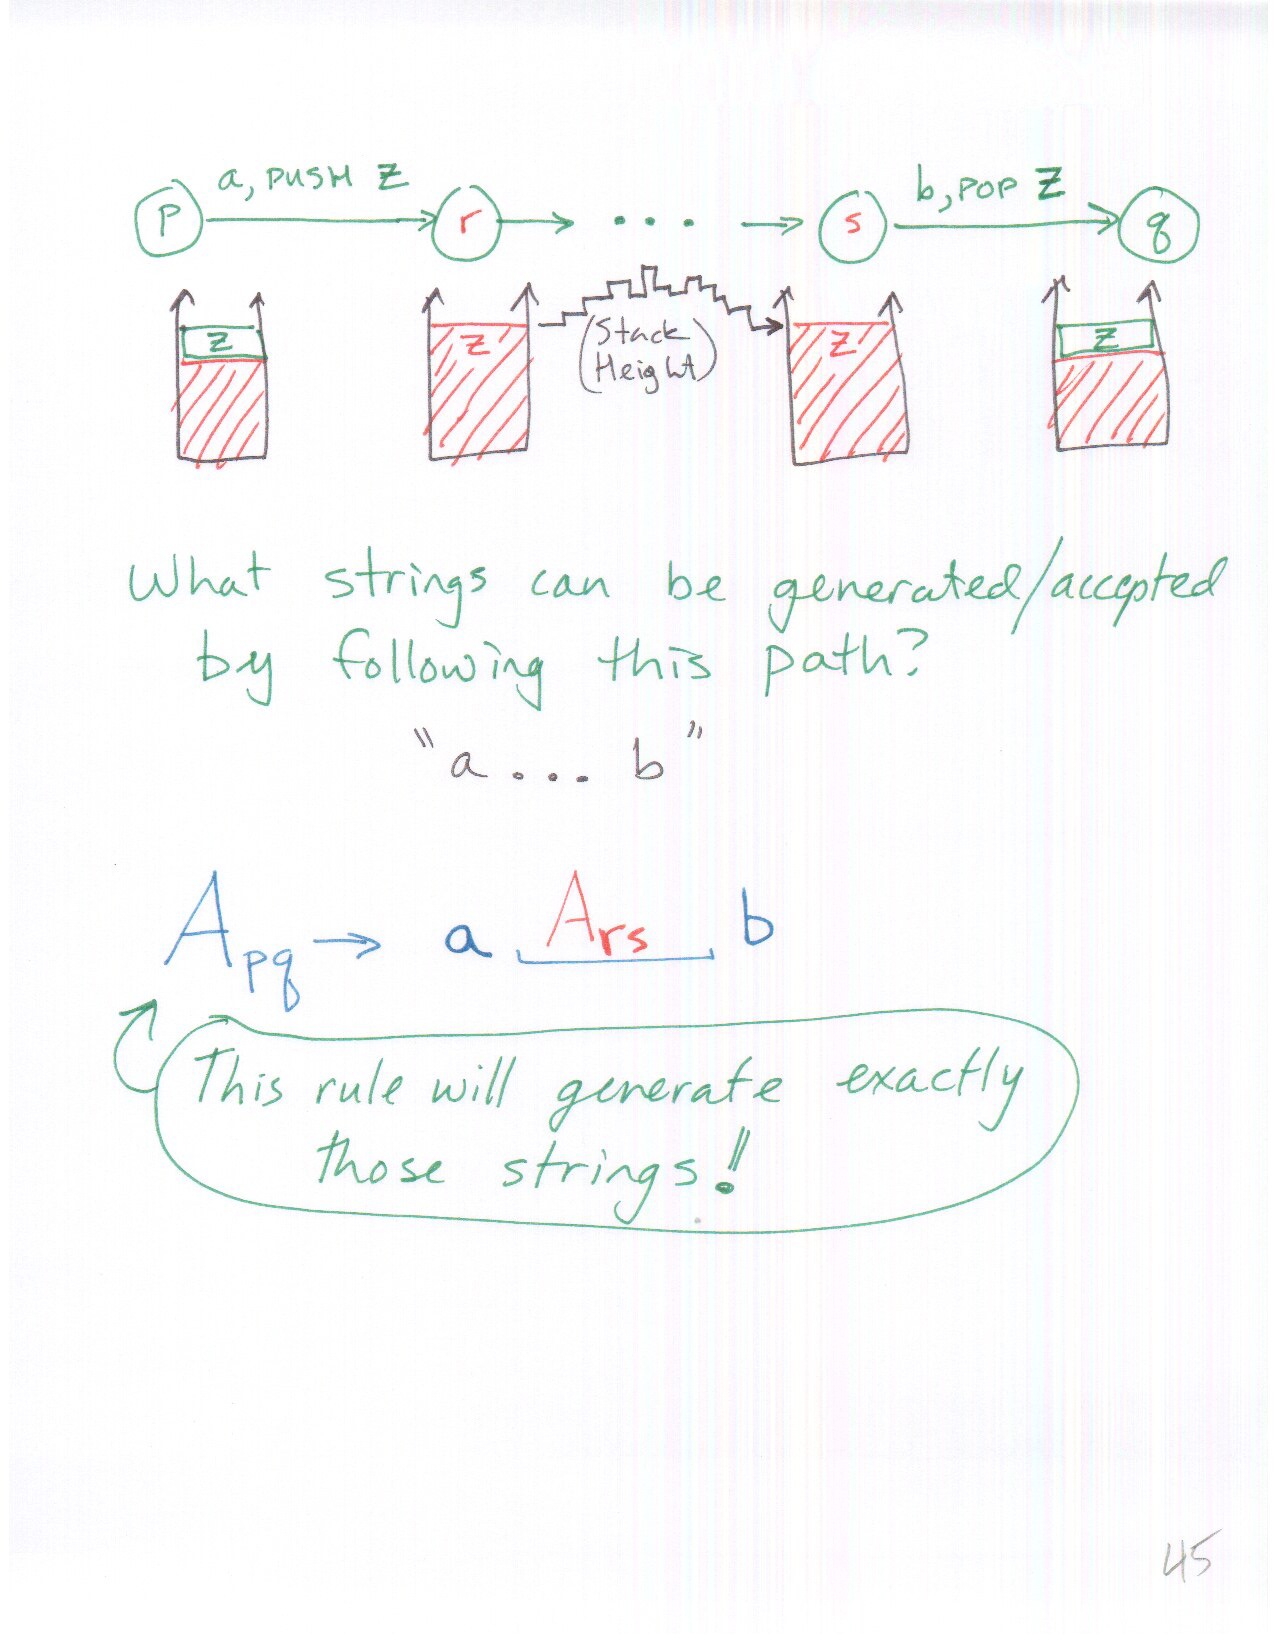 a, PUSH Z
b, POP Z
p r ... s q
Z Z Z Z
(Stack
Height)
What strings can be generated/accepted
by following this path?
"a ... b"
Apq → a Ars b
This rule will generate exactly
those strings!!
45